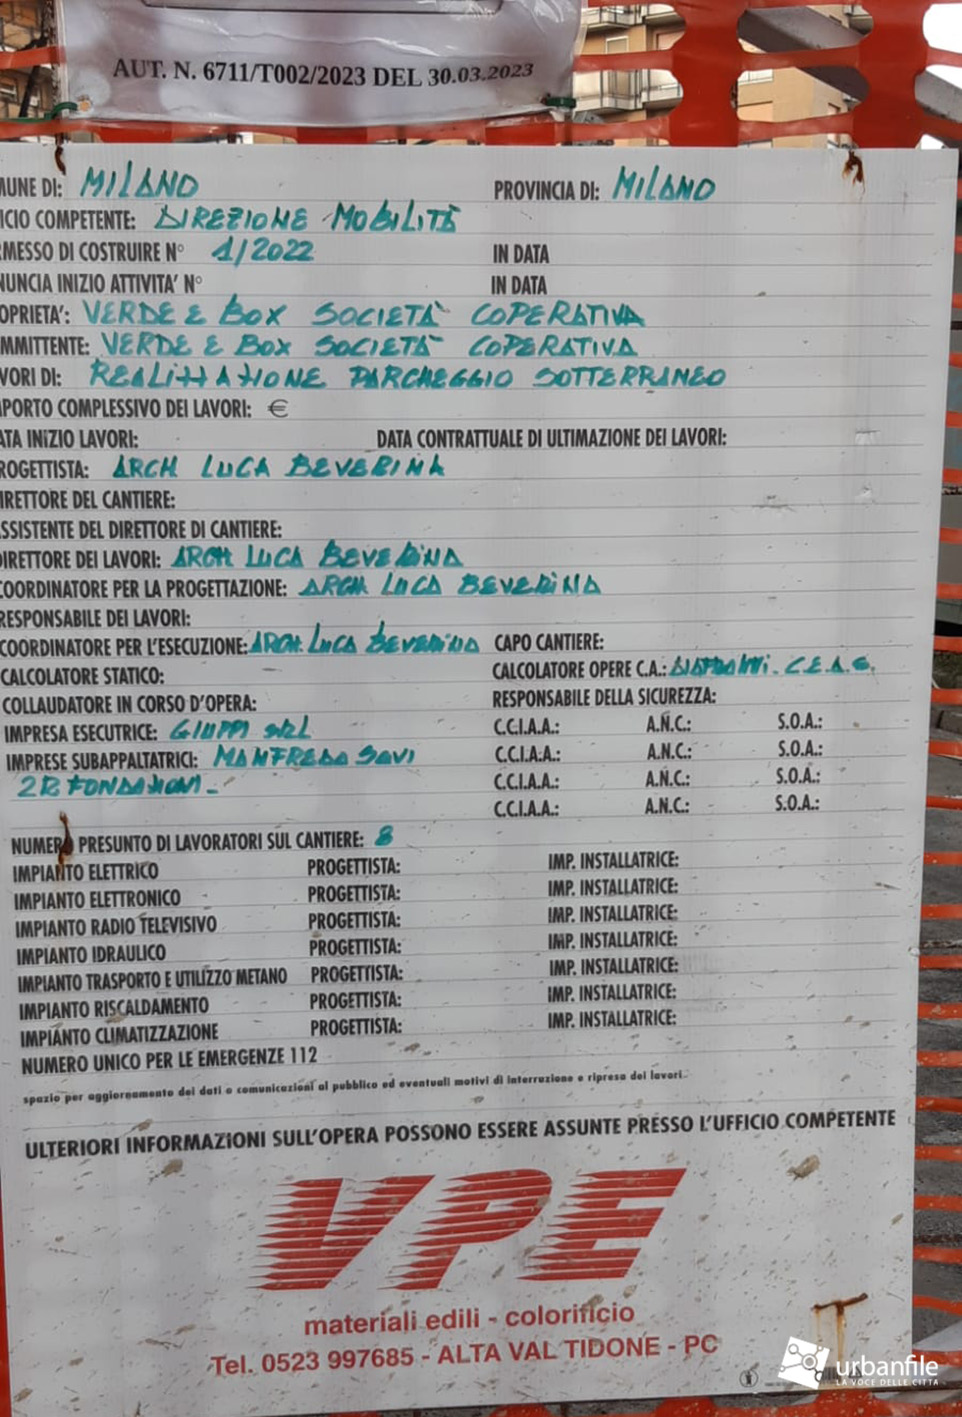 AUT. N. 6711/T002/2023 DEL 30.03.2023
MUNE DI: MILANO PROVINCIA DI: MILANO
ICIO COMPETENTE: DIREZIONE MOBILITÀ
RMESSO DI COSTRUIRE N° 1/2022 IN DATA
NUNCIA INIZIO ATTIVITA' N° IN DATA
OPRIETA': VERDE E BOX SOCIETA' COPERATIVA
MMITTENTE: VERDE E BOX SOCIETA' COPERATIVA
VORI DI: REALIZZAZIONE PARCHEGGIO SOTTERRANEO
PORTO COMPLESSIVO DEI LAVORI: €
ATA INIZIO LAVORI: DATA CONTRATTUALE DI ULTIMAZIONE DEI LAVORI:
ROGETTISTA: ARCH LUCA BEVERINA
IRETTORE DEL CANTIERE:
SSISTENTE DEL DIRETTORE DI CANTIERE:
DIRETTORE DEI LAVORI: ARCH LUCA BEVERINA
COORDINATORE PER LA PROGETTAZIONE: ARCH LUCA BEVERINA
RESPONSABILE DEI LAVORI:
COORDINATORE PER L'ESECUZIONE: ARCH. LUCA BEVERINA CAPO CANTIERE:
CALCOLATORE STATICO: CALCOLATORE OPERE C.A.: C.E.A.S.
COLLAUDATORE IN CORSO D'OPERA: RESPONSABILE DELLA SICUREZZA:
IMPRESA ESECUTRICE: GIUPPI SRL C.C.I.A.A.: A.N.C.: S.O.A.:
IMPRESE SUBAPPALTATRICI: MANFREDA SAVI C.C.I.A.A.: A.N.C.: S.O.A.:
2R FONDAZIONI - C.C.I.A.A.: A.N.C.: S.O.A.:
C.C.I.A.A.: A.N.C.: S.O.A.:
NUMERO PRESUNTO DI LAVORATORI SUL CANTIERE: 8
IMPIANTO ELETTRICO PROGETTISTA: IMP. INSTALLATRICE:
IMPIANTO ELETTRONICO PROGETTISTA: IMP. INSTALLATRICE:
IMPIANTO RADIO TELEVISIVO PROGETTISTA: IMP. INSTALLATRICE:
IMPIANTO IDRAULICO PROGETTISTA: IMP. INSTALLATRICE:
IMPIANTO TRASPORTO E UTILIZZO METANO PROGETTISTA: IMP. INSTALLATRICE:
IMPIANTO RISCALDAMENTO PROGETTISTA: IMP. INSTALLATRICE:
IMPIANTO CLIMATIZZAZIONE PROGETTISTA: IMP. INSTALLATRICE:
NUMERO UNICO PER LE EMERGENZE 112
spazio per aggiornamento dei dati o comunicazioni al pubblico ed eventuali motivi di interruzione e ripresa dei lavori.
ULTERIORI INFORMAZIONI SULL'OPERA POSSONO ESSERE ASSUNTE PRESSO L'UFFICIO COMPETENTE
VPE
materiali edili - colorificio
Tel. 0523 997685 - ALTA VAL TIDONE - PC
urbanfile
LA VOCE DELLE CITTÀ